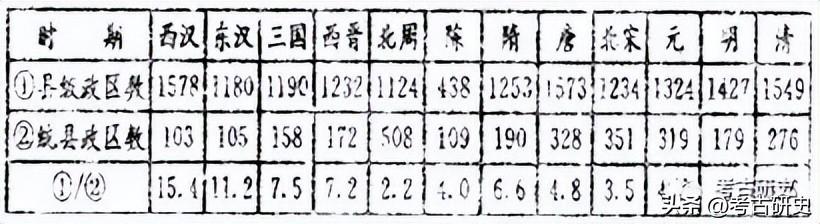 时 期 西汉 东汉 三国 西晋 北周 陈 隋 唐 北宋 元 明 清
①县级政区数 1578 1180 1190 1232 1124 438 1253 1573 1234 1324 1427 1549
②统县政区数 103 105 158 172 508 109 190 328 351 319 179 276
①/② 15.4 11.2 7.5 7.2 2.2 4.0 6.6 4.8 3.5
考古研史
头条 @考古研史